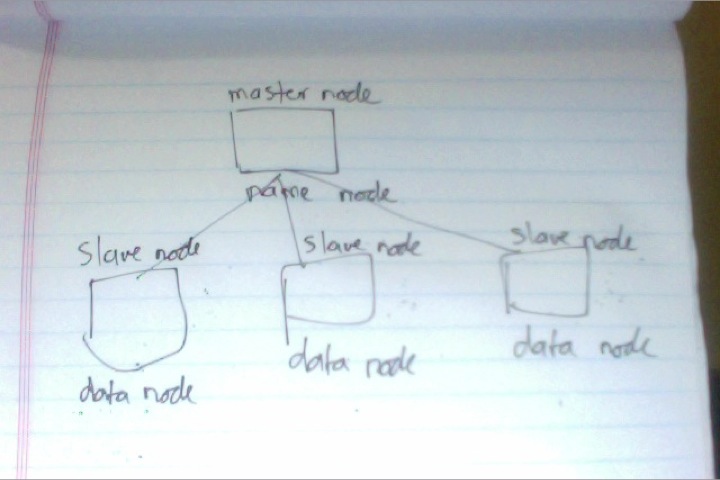 master node
name node
slave node
slave node
slave node
data node
data node
data node